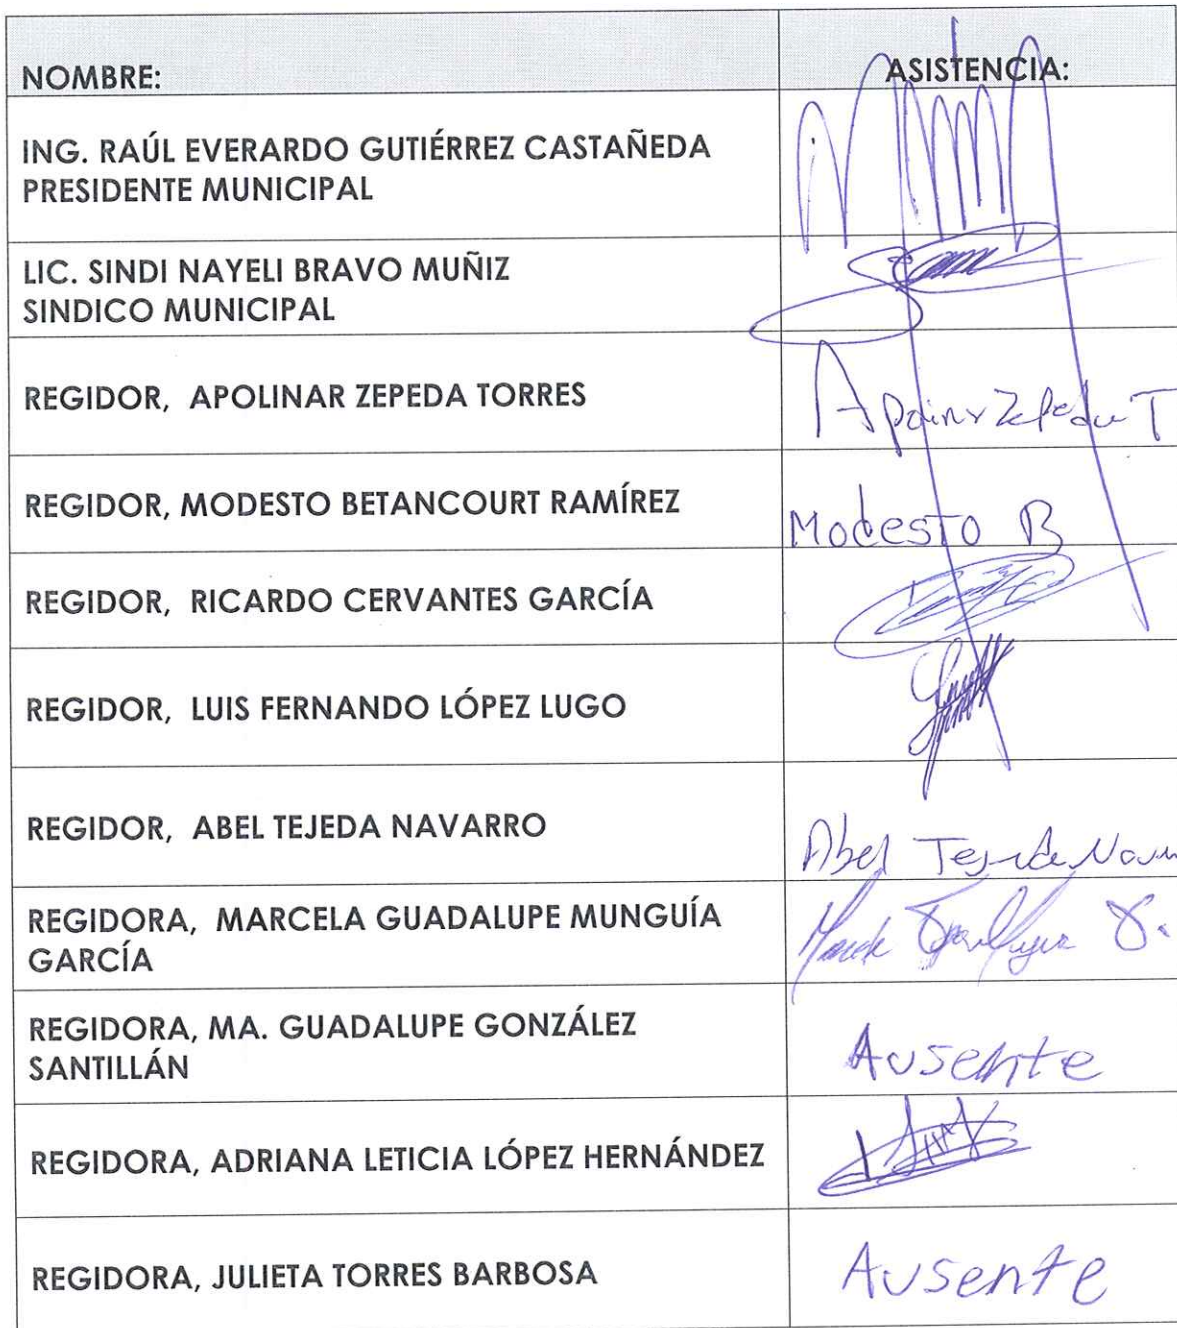 NOMBRE: ASISTENCIA:
ING. RAÚL EVERARDO GUTIÉRREZ CASTAÑEDA
PRESIDENTE MUNICIPAL
LIC. SINDI NAYELI BRAVO MUÑIZ
SINDICO MUNICIPAL
REGIDOR, APOLINAR ZEPEDA TORRES
Apolinar Zepeda T
REGIDOR, MODESTO BETANCOURT RAMÍREZ
Modesto B
REGIDOR, RICARDO CERVANTES GARCÍA
REGIDOR, LUIS FERNANDO LÓPEZ LUGO
REGIDOR, ABEL TEJEDA NAVARRO
Abel Tejeda
REGIDORA, MARCELA GUADALUPE MUNGUÍA
GARCÍA
REGIDORA, MA. GUADALUPE GONZÁLEZ
SANTILLÁN
Ausente
REGIDORA, ADRIANA LETICIA LÓPEZ HERNÁNDEZ
REGIDORA, JULIETA TORRES BARBOSA
Ausente